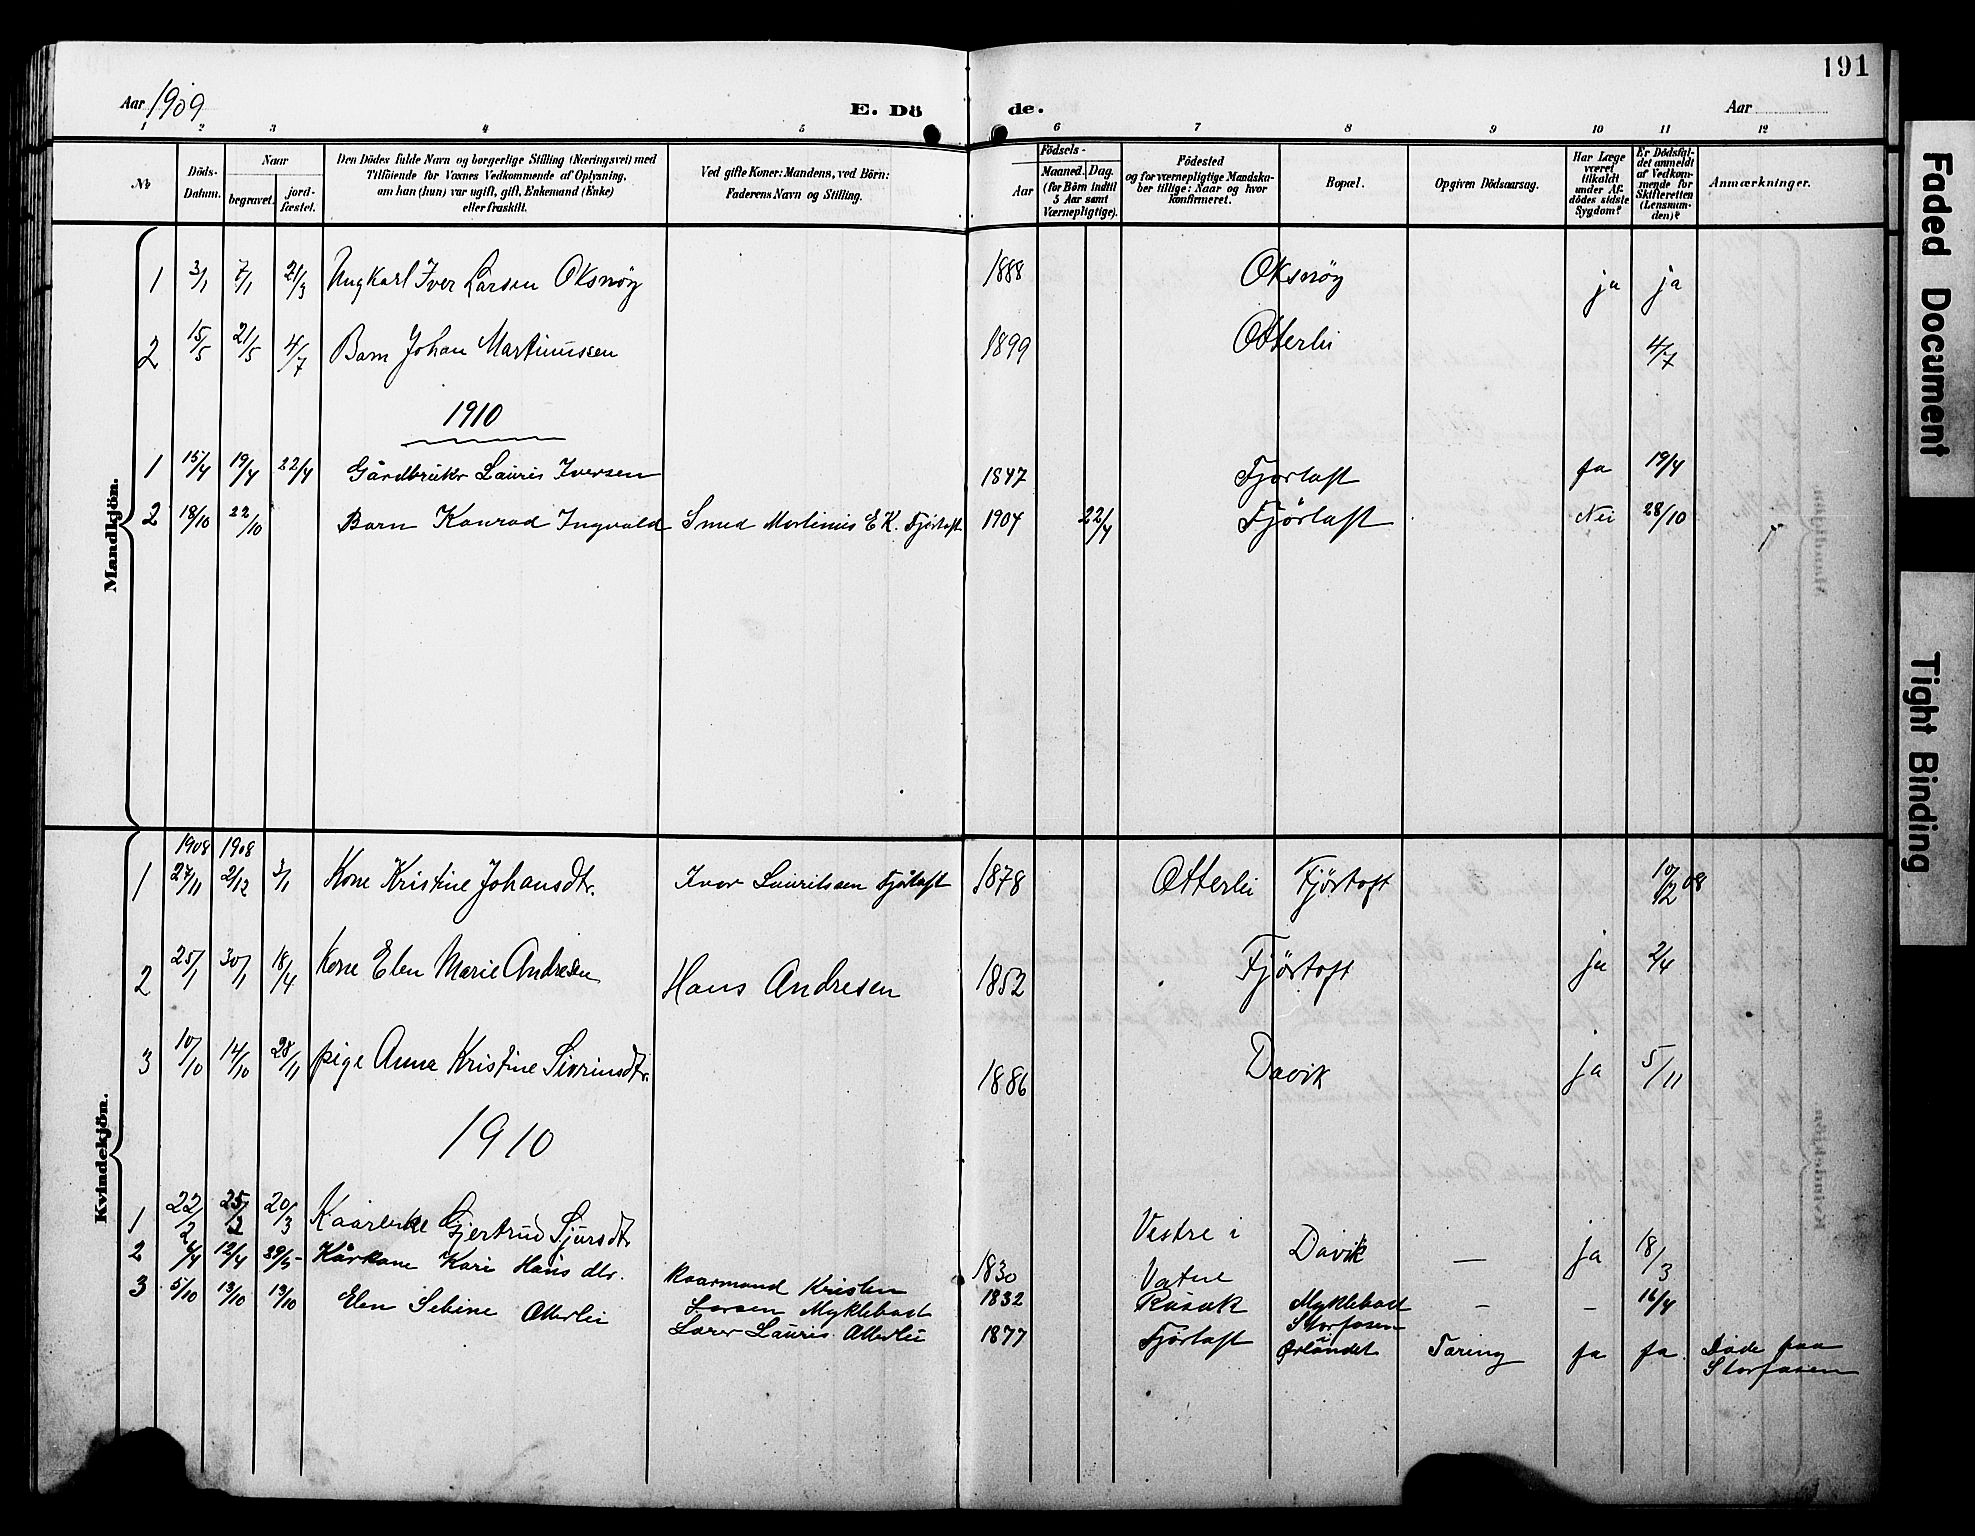 191
Aar 1909
E. Döde.
Aar
1 2 3 4 5 6 7 8 9 10 11 12
No
Döds-Datum.
Naar
begravet.
jord-fæstet.
Den Dödes fulde Navn og borgerlige Stilling (Næringsvei) med
Tilföiende for Voxnes Vedkommende af Oplysning,
om han (hun) var ugift, gift, Enkemand (Enke)
eller fraskilt.
Ved gifte Koner: Mandens, ved Börn:
Faderens Navn og Stilling.
Födsels-
Aar
Maaned. Dag.
(for Börn indtil
5 Aar samt
Værnepligtige).
Födested
og for værnepligtige Mandska-
ber tillige: Naar og hvor
konfirmeret.
Bopæl.
Opgiven Dödsaarsag.
Har Læge
været
tilkaldt
under Af-
dödes sidste
Sygdom?
Er Dödsfal-
det anmeldt
af Vedkom-
mende for
Skifteretten
(Lensman-
den)?
Anmærkninger.
Mandkjön.
1 3/1 7/1 21/3 Ungkarl Iver Larsen Oksnöy 1888 Oksnöy ja ja
2 15/5 21/5 4/7 Barn Johan Martinussen 1899 Otterlei 4/7
1910
1 15/4 19/4 22/4 Gårdbruker Lauris Iversen 1847 Fjørtoft ja 19/4
2 18/10 22/10 Barn Konrad Ingvald Smed Martinus E K. Fjørtoft 1904 22/4 Fjørtoft Nei 28/10
Kvindekjön.
1908 1908
1 27/11 2/12 3/1 Kone Kristine Johansdtr. Iver Lauritsen Fjørtoft 1878 Otterlei Fjörtoft 10/12 08
2 25/1 30/1 18/4 Kone Elen Marie Andresen Hans Andresen 1852 Fjörtoft ja 2/4
3 10/10 14/10 28/11 pige Anna Kristine Sivrinsdtr. 1886 Davik ja 5/11
1910
1 22/2 25/2 20/3 Kaarenke Gjertrud Sjursdtr 1830 Vestre i Vatne Davik — ja 18/3
2 6/4 12/4 29/5 Kårkone Kari Hans dtr. Kaarmand Kristen Larsen Myklebost 1832 Myklebost — — 16/4
3 5/10 13/10 13/10 Elen Sebine Otterlei Lærer Lauris Otterlei 1877 Fjørtoft Storfosen Ørlandet Tæring ja ja Døde paa
Storfosen
Faded Document
Tight Binding